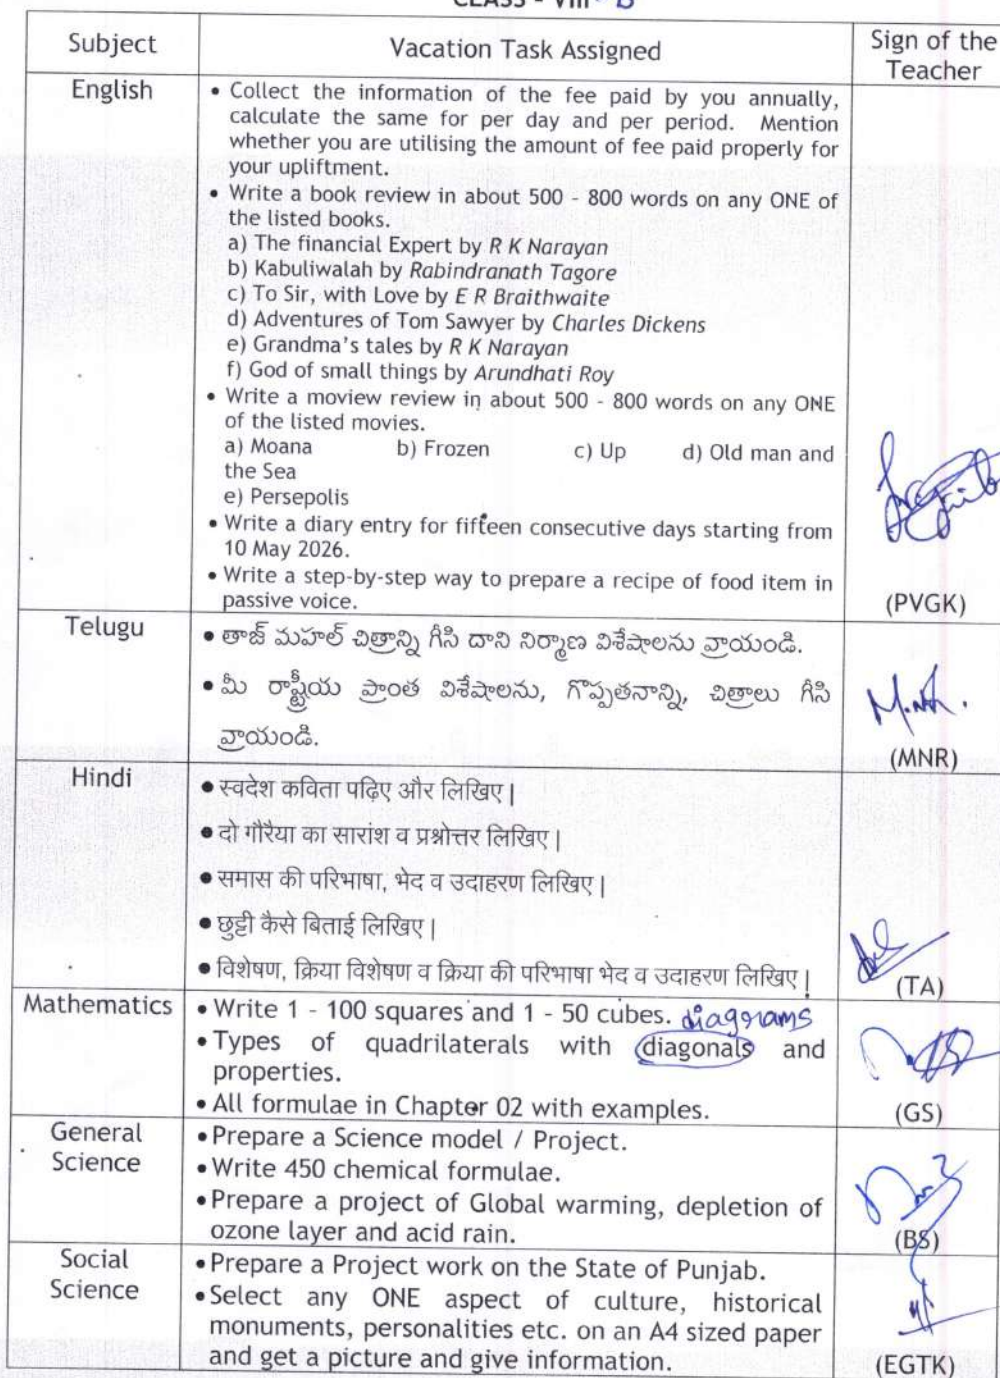 CLASS - VIII - B
Subject
Vacation Task Assigned
Sign of the
Teacher
English
• Collect the information of the fee paid by you annually,
calculate the same for per day and per period. Mention
whether you are utilising the amount of fee paid properly for
your upliftment.
• Write a book review in about 500 - 800 words on any ONE of
the listed books.
a) The financial Expert by R K Narayan
b) Kabuliwalah by Rabindranath Tagore
c) To Sir, with Love by E R Braithwaite
d) Adventures of Tom Sawyer by Charles Dickens
e) Grandma's tales by R K Narayan
f) God of small things by Arundhati Roy
• Write a moview review in about 500 - 800 words on any ONE
of the listed movies.
a) Moana b) Frozen c) Up d) Old man and
the Sea
e) Persepolis
• Write a diary entry for fifteen consecutive days starting from
10 May 2026.
• Write a step-by-step way to prepare a recipe of food item in
passive voice.
(PVGK)
Telugu
• తాజ్ మహల్ చిత్రాన్ని గీసి దాని నిర్మాణ విశేషాలను వ్రాయండి.
• మీ రాష్ట్రీయ ప్రాంత విశేషాలను, గొప్పతనాన్ని, చిత్రాలు గీసి
వ్రాయండి.
(MNR)
Hindi
• स्वदेश कविता पढ़िए और लिखिए |
• दो गौरैया का सारांश व प्रश्नोत्तर लिखिए |
• समास की परिभाषा, भेद व उदाहरण लिखिए |
• छुट्टी कैसे बिताई लिखिए |
• विशेषण, क्रिया विशेषण व क्रिया की परिभाषा भेद व उदाहरण लिखिए |
(TA)
Mathematics
• Write 1 - 100 squares and 1 - 50 cubes. diagrams
• Types of quadrilaterals with diagonals and
properties.
• All formulae in Chapter 02 with examples.
(GS)
General
Science
• Prepare a Science model / Project.
• Write 450 chemical formulae.
• Prepare a project of Global warming, depletion of
ozone layer and acid rain.
(BS)
Social
Science
• Prepare a Project work on the State of Punjab.
• Select any ONE aspect of culture, historical
monuments, personalities etc. on an A4 sized paper
and get a picture and give information.
(EGTK)